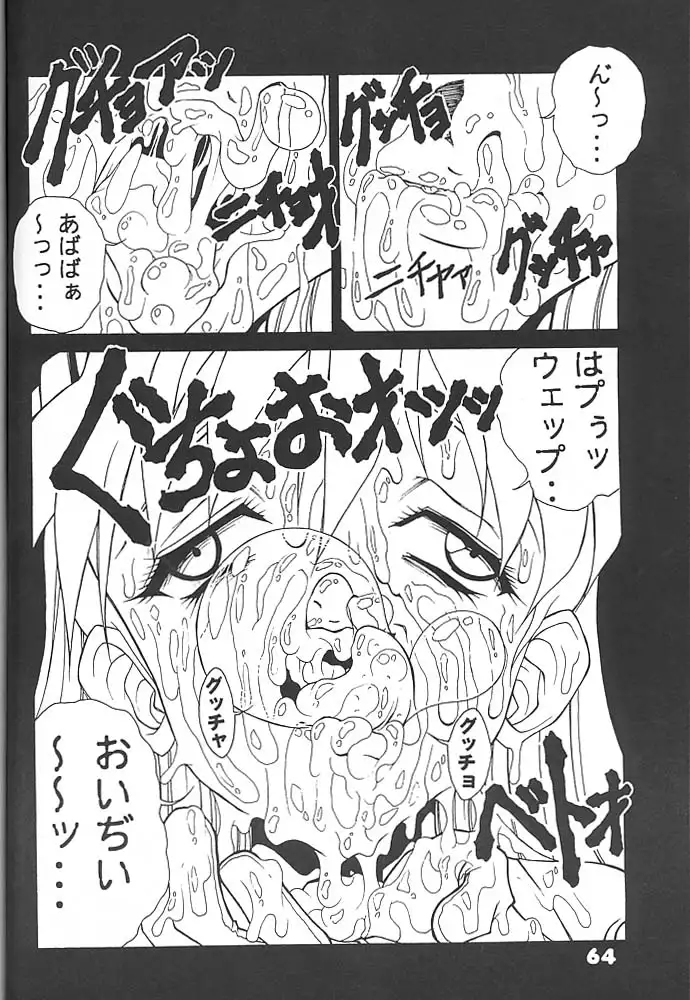 ん〜っ・・・
グッチョ
グッチャ
ニチャァ
グチョアッ
ニチョオ
あばばぁ
〜っっ・・・
はプぅッ
ウェップ・・
ぐちょおオッッ
グッチャ
グッチョ
ベトォ
おいぢい
〜〜ッ・・・
64